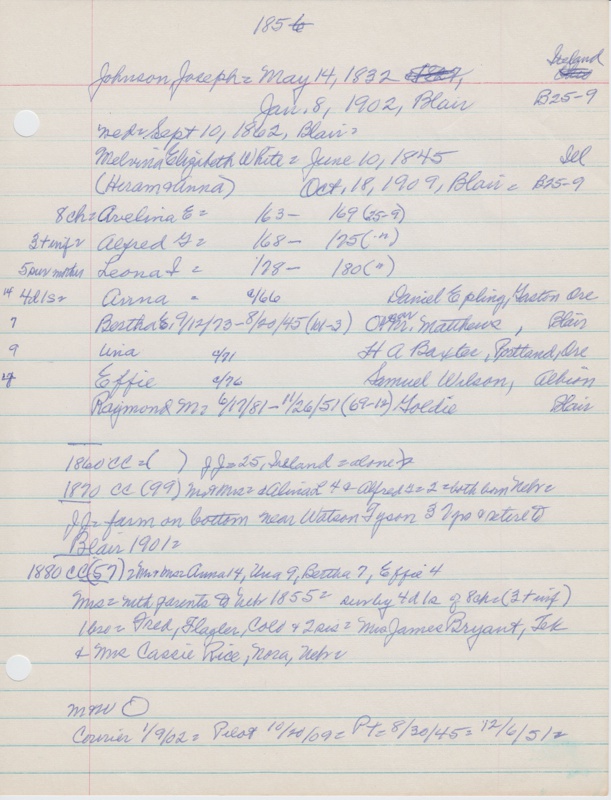 1856
Johnson, Joseph = May 14, 1832 Ireland
Jan. 8, 1902, Blair B25-9
med = Sept 10, 1862, Blair =
Melvina Elizabeth White = June 10, 1845 Ill
(Hiram & Anna) Oct, 18, 1909, Blair = B25-9
8ch = Avelina E = 163 - 169 (25-9)
3 + inf = Alfred G = 168 - 175 (")
Leona I = 178 - 180 (")
14 4dls = Anna = c/66 Daniel Epling, Gaston Ore
7 Bertha E, 9/12/73 - 8/20/45 (bl-3) Matthews, Blair
9 Una c/71 H A Baxter, Portland, Ore
4 Effie c/76 Samuel Wilson, Albion
Raymond M = 6/17/81 - 11/26/51 (69-12) Goldie Blair
1860 CC = ( ) JJ = 25, Ireland = alone
1870 CC (99) Mr & Mrs = & Alvina L 4 & Alfred G = 2 = both born Nebr =
JJ = farm on bottom near Watson Tyson 3 & retire to
Blair 1901 =
1880 CC (57) = Mr & Mrs = Anna 14, Una 9, Bertha 7, Effie 4
Mrs = with parents to Nebr 1855 = surv by 4 dls of 8ch = (3 + inf)
1 bro = Fred, Flagler, Colo & 2 sis = Mrs James Bryant, Tek
& Mrs Cassie Rice, Nora, Nebr =
Courier 1/9/02 = Pilot 10/20/09 = PT = 8/30/45 = 12/6/51 =